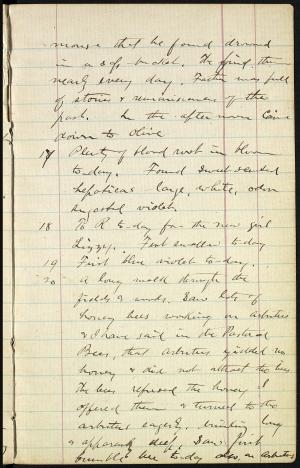 mouse that he found drowned
in a sap-bucket. He finds them
nearly every day. Father was full
of stories & reminiscences of the
past. In the after noon came
down to Olive
17 Plenty of blood root in bloom
to-day. Found sweet-scented
hepaticas large, white, odor
suggested violets.
18 To R to-day for the new girl
Lizzy. First swallow to-day
19 First blue violet to-day.
20 A long walk through the
fields & woods. Saw lots of
honey bees working on arbutus
& I have said in the Pastoral
Bees, that arbutus yielded no
honey & did not attract the bees
The bees refused the honey I
offered them & turned to the
arbutus eagerly, drinking long
& apparently deep. Saw first
bumble bee to-day also on arbutus